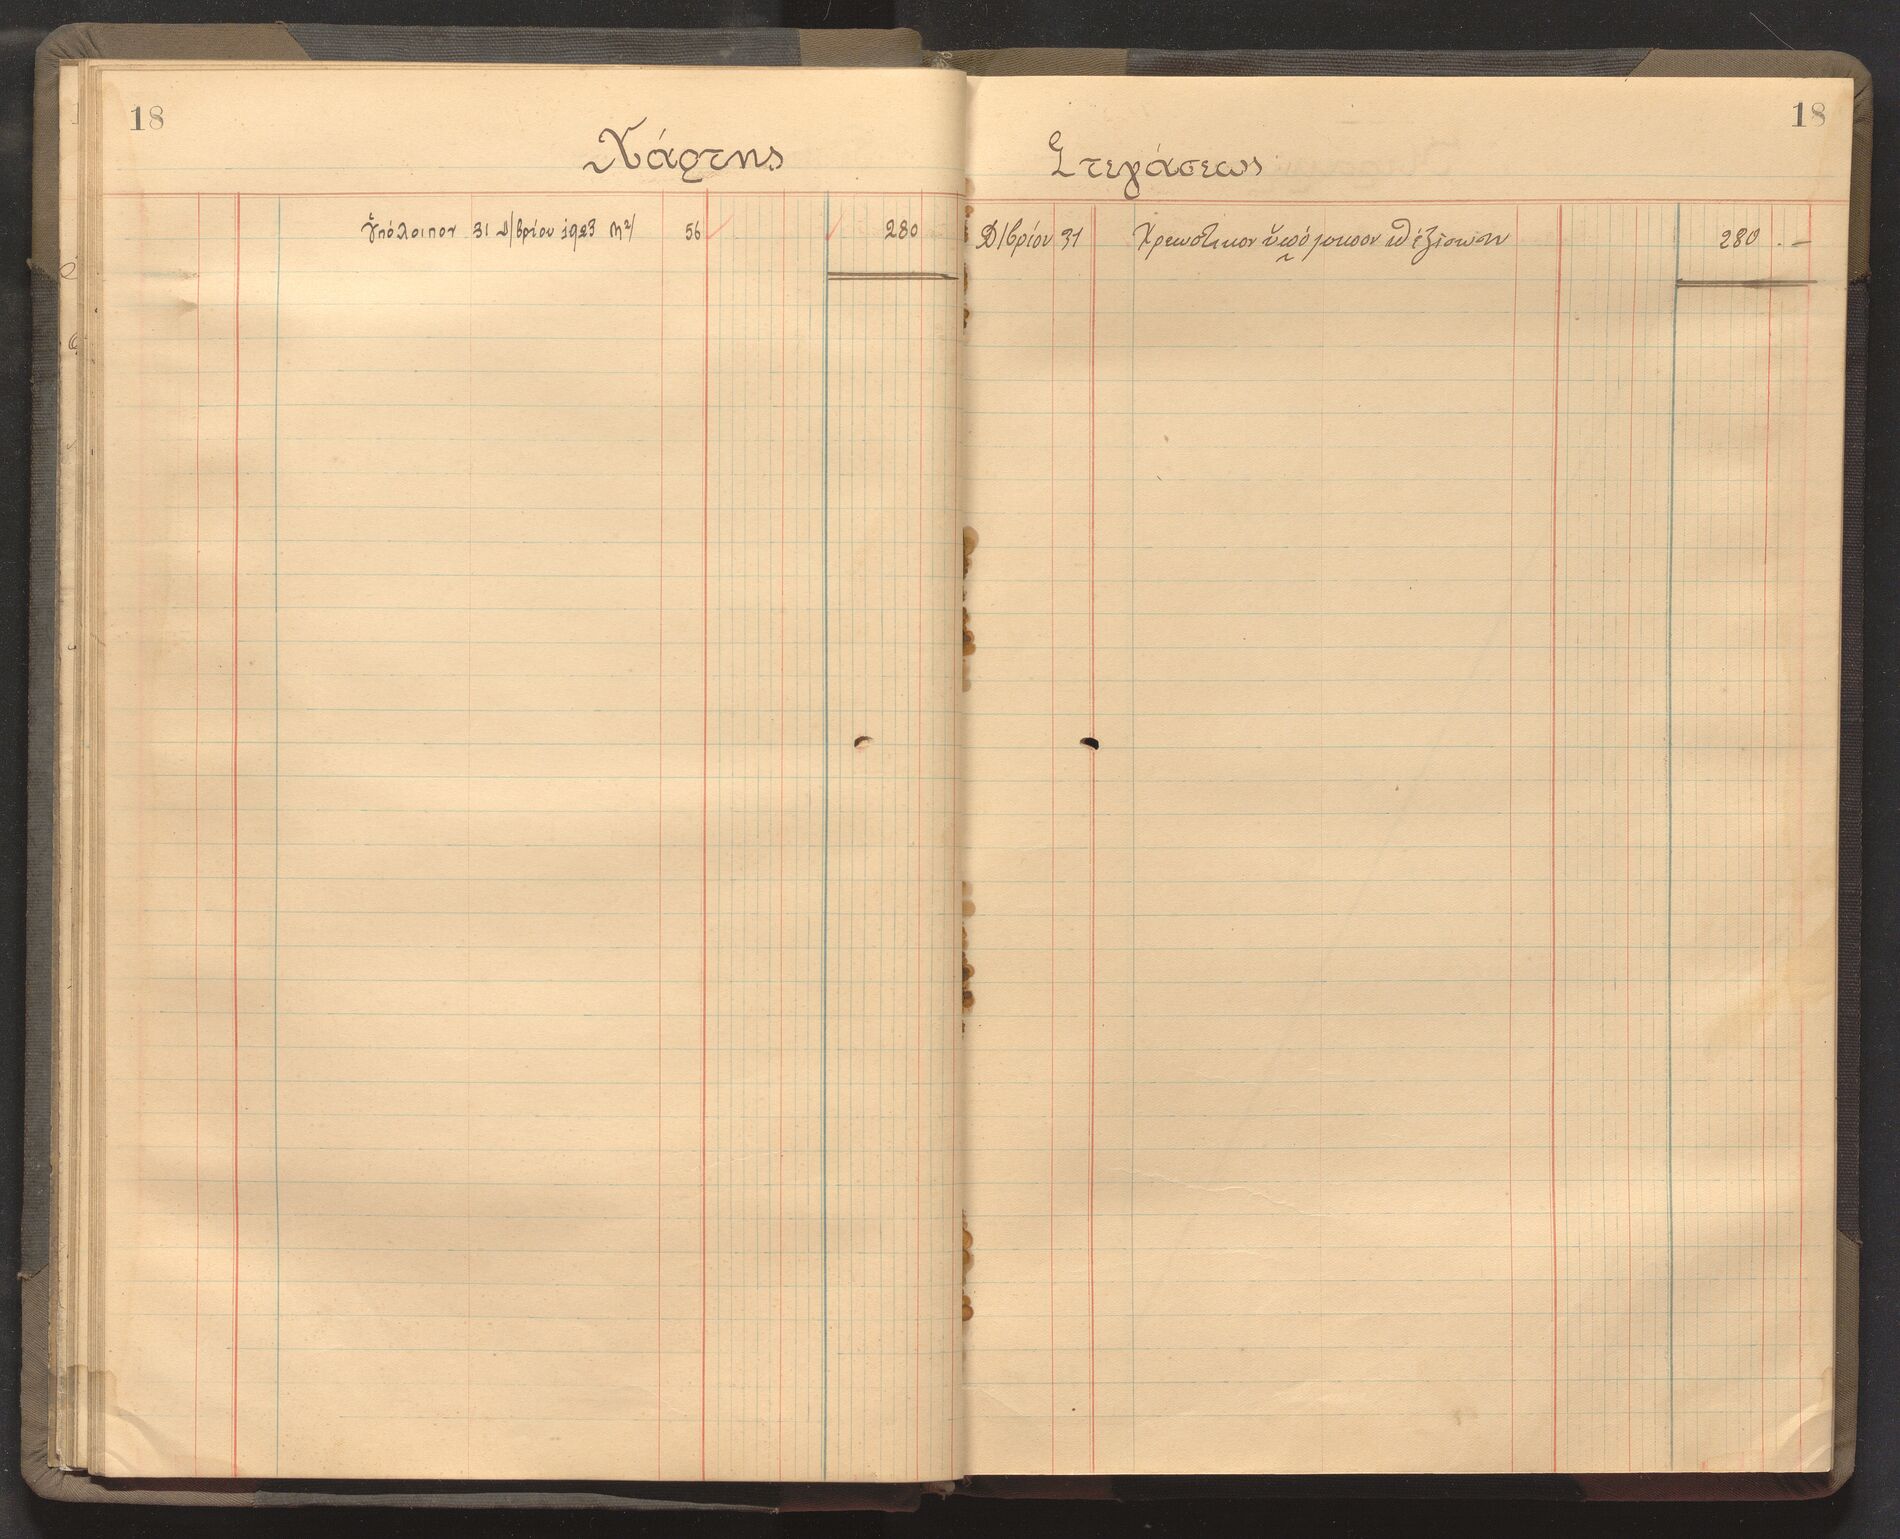 18
Χάρτης
Ὑπόλοιπον 31 Δ/βρίου 1923 m2/ 56 280
18
Στεγάσεως
Δ/βρίου 31 Χρεωστικον ὑπόλοιπον 280 . —